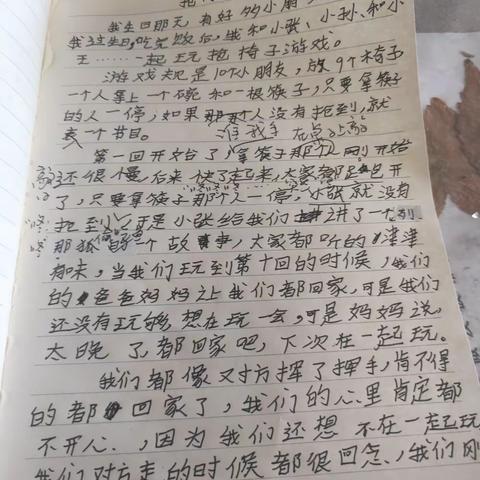 我生日那天有好的小朋
我过生日,吃完饭后,我和小张、小孙、和小
王……一起玩抢椅子游戏。
游戏规是10个小朋友,放9个椅子
一个人拿上一个碗和一根筷子,只要拿筷子
的人一停,如果那个人没有抢到,就
表一个节目。
第一回开始了,拿筷子那个人刚开始
还很慢后来快了起来,大家都起开
了,只要拿筷子那个人一停,小张就没有
抢到,于是小张给我们讲了一个
那狐 个故事,大家都听的津津
有味,当我们玩到第十回的时候,我们
的爸爸妈妈让我们都回家,可是我们
还没有玩够想在玩一会,可是妈妈说,
太晚了都回家吧,下次在一起玩。
我们都像对方挥了挥手,肯不得
的都回家了,我们的心里肯定都
不开心.,因为我们还想不在一起玩
我们对方走的时候都很回念.,我们刚